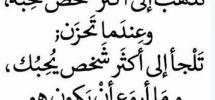 تذهب إلى أكثر شخص تحبه،
وعندما تحزن؛
تلجأ إلى أكثر شخص يحبك،
وما أروع أن يكون هو